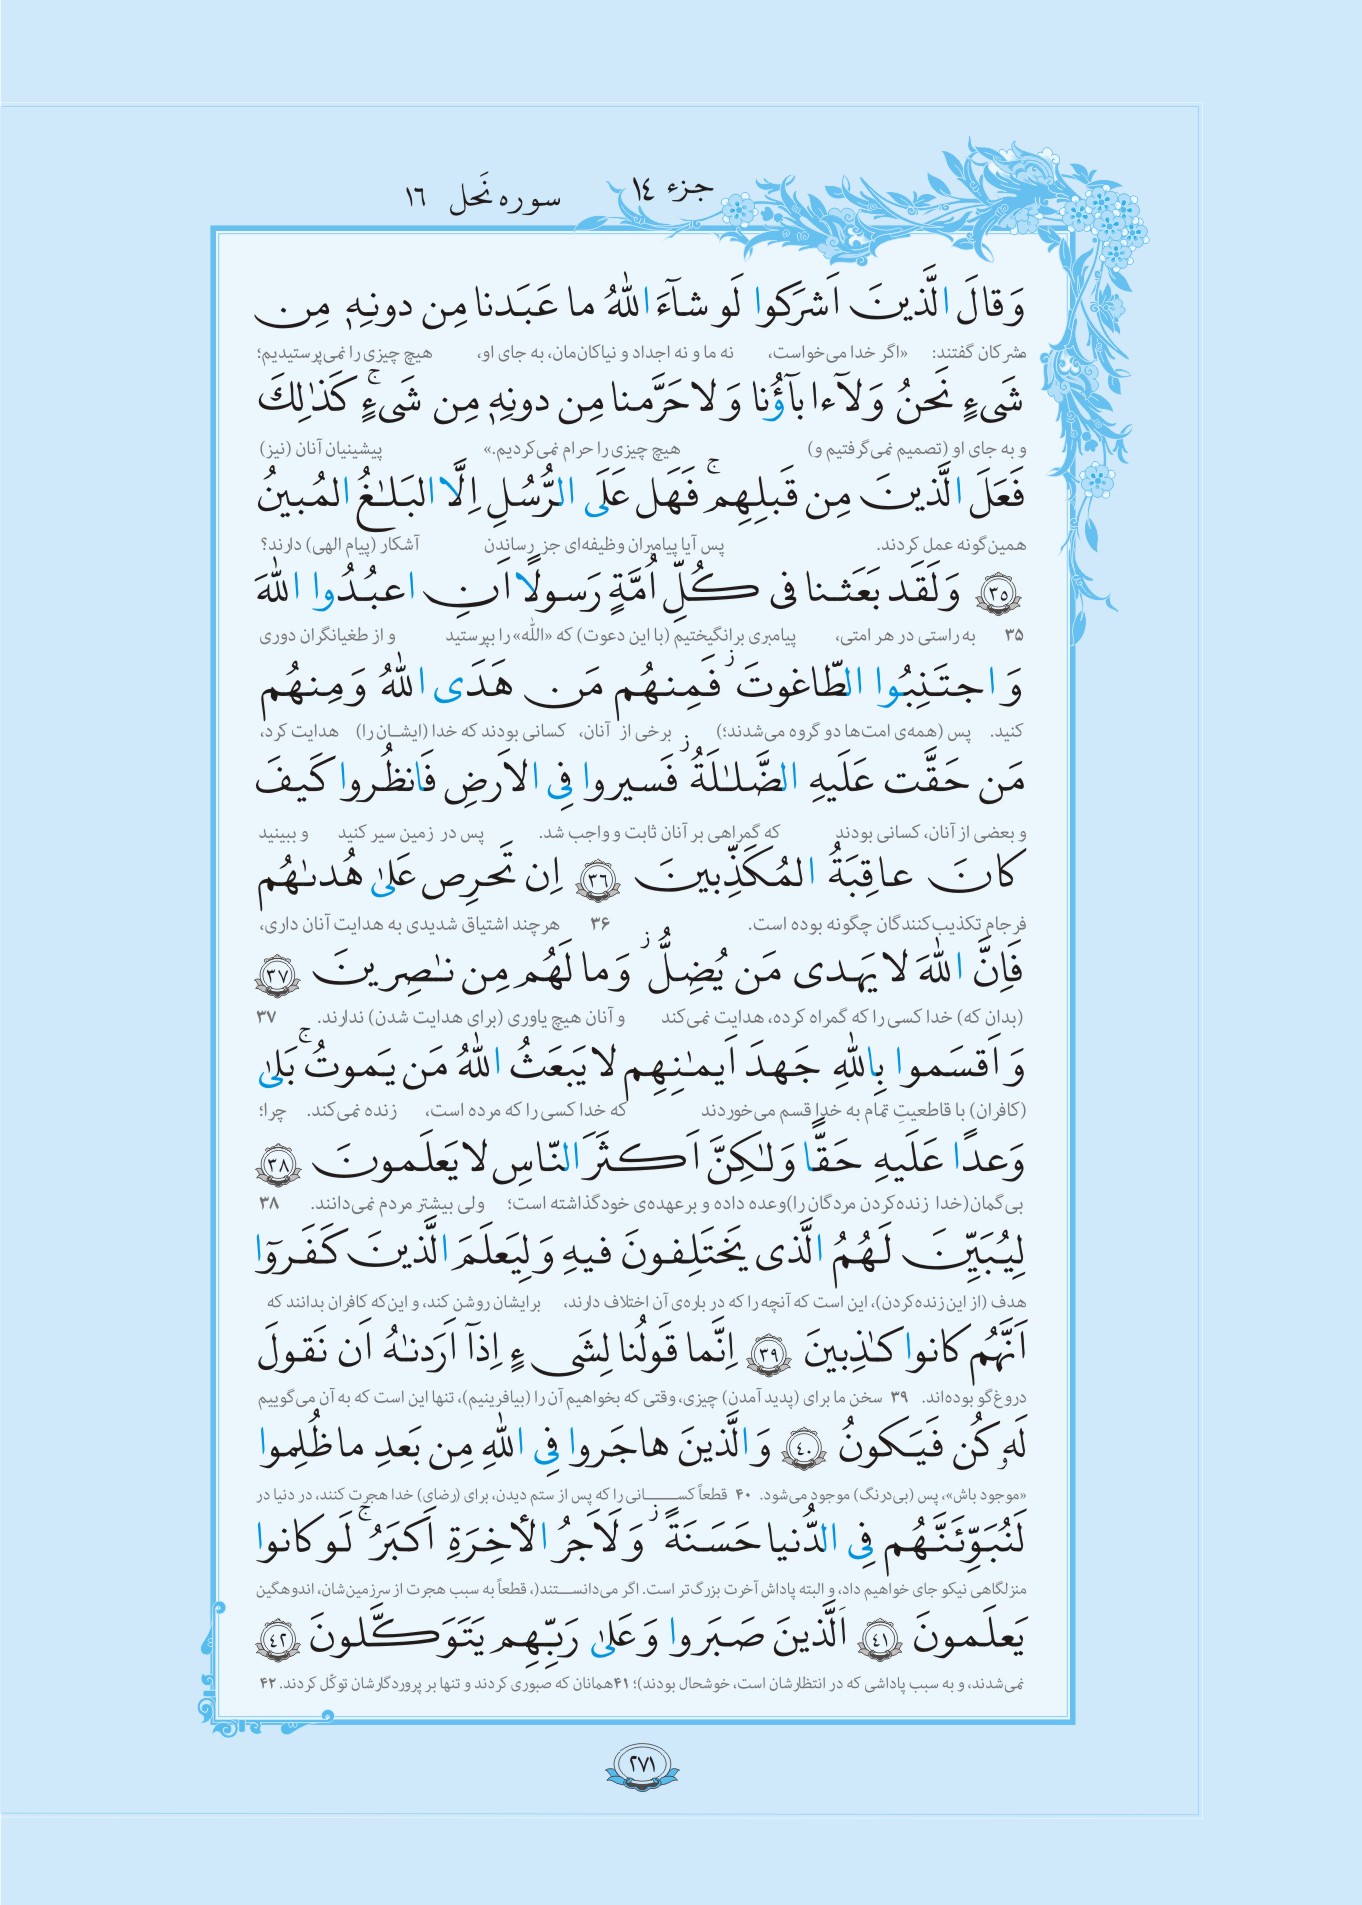 جزء ١٤
سوره نَحل ١٦
وَ قالَ الَّذينَ اَشرَكوا لَو شآءَ اللّٰهُ ما عَبَدنا مِن دونِهٖ مِن
مشرکان گفتند: «اگر خدا می‌خواست، نه ما و نه اجداد و نیاکان‌مان، به جای او، هیچ چیزی را نمی‌پرستیدیم؛
شَیءٍ نَحنُ وَ لآ ءابآؤُنا وَ لا حَرَّمنا مِن دونِهٖ مِن شَیءٍ ۚ كَذٰلِكَ
و به جای او (تصمیم نمی‌گرفتیم و) هیچ چیزی را حرام نمی‌کردیم.» پیشینیان آنان (نیز)
فَعَلَ الَّذينَ مِن قَبلِهِم ۚ فَهَل عَلَى الرُّسُلِ اِلَّا البَلٰغُ المُبينُ
همین‌گونه عمل کردند. پس آیا پیامبران وظیفه‌ای جز رساندن آشکار (پیام الهی) دارند؟
٣٥ وَ لَقَد بَعَثنا فی كُلِّ اُمَّةٍ رَسولًا اَنِ اعبُدُوا اللّٰهَ
۳۵ به‌راستی در هر امتی، پیامبری برانگیختیم (با این دعوت) که «اللّٰه» را بپرستید و از طغیانگران دوری
وَ اجتَنِبُوا الطّاغوتَ ۖ فَمِنهُم مَن هَدَى اللّٰهُ وَ مِنهُم
کنید. پس (همه‌ی امت‌ها دو گروه می‌شدند؛) برخی از آنان، کسانی بودند که خدا (ایشان را) هدایت کرد،
مَن حَقَّت عَلَيهِ الضَّلٰلَةُ ۚ فَسيروا فِی الاَرضِ فَانظُروا كَيفَ
و بعضی از آنان، کسانی بودند که گمراهی بر آنان ثابت و واجب شد. پس در زمین سیر کنید و ببینید
كانَ عاقِبَةُ المُكَذِّبينَ ٣٦ اِن تَحرِص عَلىٰ هُدىٰهُم
فرجام تکذیب‌کنندگان چگونه بوده است. ۳۶ هرچند اشتیاق شدیدی به هدایت آنان داری،
فَاِنَّ اللّٰهَ لا يَهدی مَن يُضِلُّ ۖ وَ ما لَهُم مِن نٰصِرينَ ٣٧
(بدان که) خدا کسی را که گمراه کرده، هدایت نمی‌کند و آنان هیچ یاوری (برای هدایت شدن) ندارند. ۳۷
وَ اَقسَموا بِاللّٰهِ جَهدَ اَيمٰنِهِم لا يَبعَثُ اللّٰهُ مَن يَموتُ ۚ بَلىٰ
(کافران) با قاطعیتِ تمام به خدا قسم می‌خوردند که خدا کسی را که مرده است، زنده نمی‌کند. چرا؛
وَعدًا عَلَيهِ حَقًّا وَ لٰكِنَّ اَكثَرَ النّاسِ لا يَعلَمونَ ٣٨
بی‌گمان(خدا زنده‌کردن مردگان را)وعده داده و برعهده‌ی خودگذاشته است؛ ولی بیشتر مردم نمی‌دانند. ۳۸
لِيُبَيِّنَ لَهُمُ الَّذی يَختَلِفونَ فيهِ وَ لِيَعلَمَ الَّذينَ كَفَروٓا
هدف (از این زنده‌کردن)، این است که آنچه را که در باره‌ی آن اختلاف دارند، برایشان روشن کند، و این‌که کافران بدانند که
اَنَّهُم كانوا كٰذِبينَ ٣٩ اِنَّما قَولُنا لِشَیءٍ اِذآ اَرَدنٰهُ اَن نَقولَ
دروغ‌گو بوده‌اند. ۳۹ سخن ما برای (پدید آمدن) چیزی، وقتی که بخواهیم آن را (بیافرینیم)، تنها این است که به آن می‌گوییم
لَهٗ كُن فَيَكونُ ٤٠ وَ الَّذينَ هاجَروا فِی اللّٰهِ مِن بَعدِ ما ظُلِموا
«موجود باش»، پس (بی‌درنگ) موجود می‌شود. ۴۰ قطعاً کسانی را که پس از ستم دیدن، برای (رضای) خدا هجرت کنند، در دنیا در
لَنُبَوِّئَنَّهُم فِی الدُّنيا حَسَنَةً ۖ وَ لَاَجرُ الأخِرَةِ اَكبَرُ ۚ لَو كانوا
منزلگاهی نیکو جای خواهیم داد، و البته پاداش آخرت بزرگ‌تر است. اگر می‌دانستند(، قطعاً به سبب هجرت از سرزمین‌شان، اندوهگین
يَعلَمونَ ٤١ اَلَّذينَ صَبَروا وَ عَلىٰ رَبِّهِم يَتَوَكَّلونَ ٤٢
نمی‌شدند، و به سبب پاداشی که در انتظارشان است، خوشحال بودند)؛ ۴۱همانان که صبوری کردند و تنها بر پروردگارشان توکّل کردند. ۴۲
٢٧١